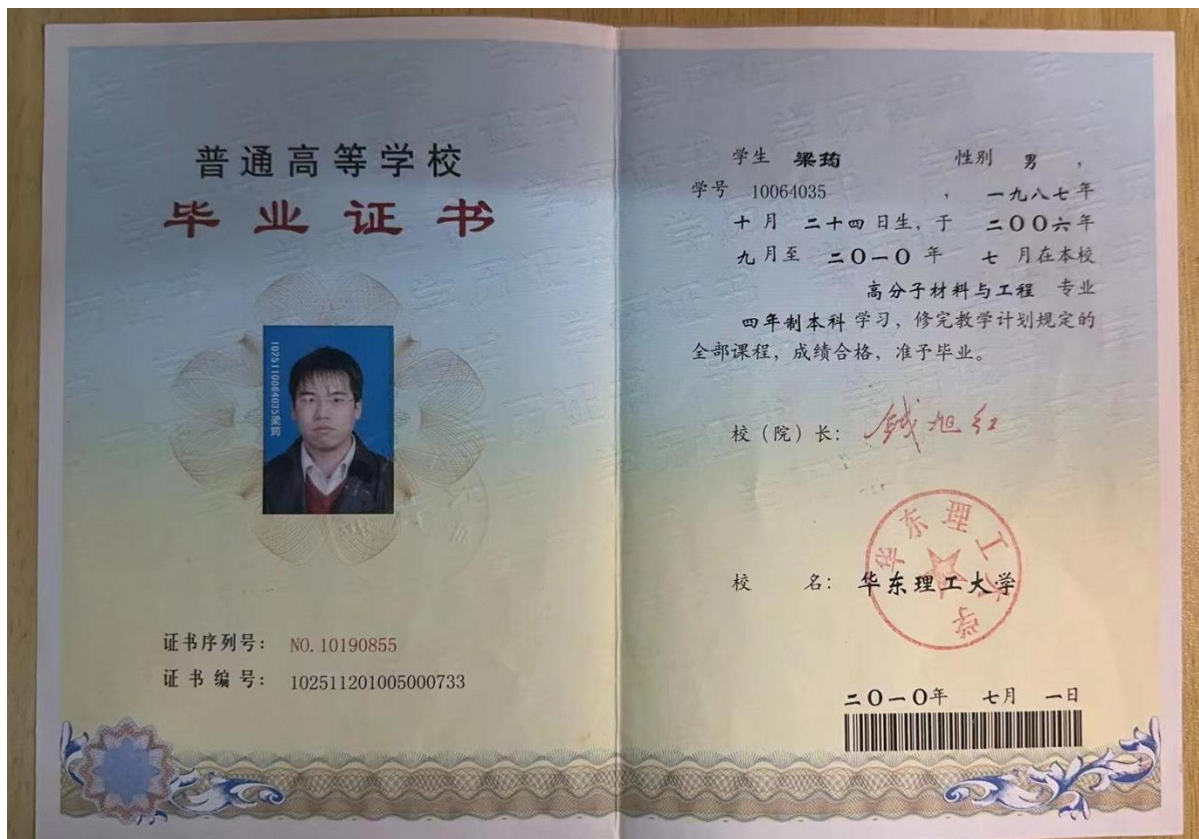 普通高等学校
毕业证书
1025110064035梁筠
证书序列号： NO. 10190855
证 书 编 号： 102511201005000733
学生 梁筠 性别 男 ，
学号 10064035 ， 一九八七年
十 月 二十四 日生，于 二〇〇六年
九 月至 二〇一〇 年 七 月在本校
高分子材料与工程 专业
四年制本科 学习，修完教学计划规定的
全部课程，成绩合格，准予毕业。
校（院）长： 钱旭红
华东理工大学
校 名： 华东理工大学
二〇一〇年 七月 一日